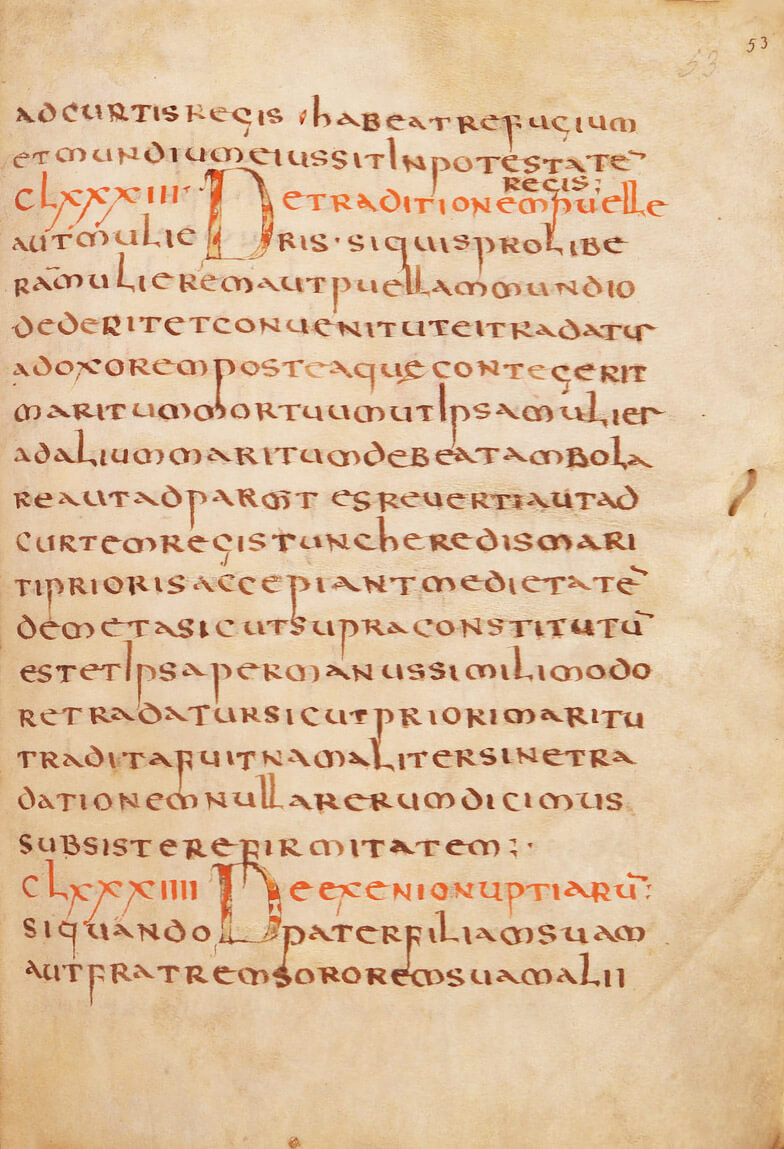 53
53
ADCURTISREGIS HABEATREFUGIUM
ETMUNDIUMEIUSSITINPOTESTATE¯
REGIS;
CLXXXIII· DETRADITIONEMPUELLE
AUTMULIE RIS·SIQUISPROLIBE
RĀMULIEREMAUTPUELLAMMUNDIO
DEDERITETCONUENITUTEITRADATUR
ADOXOREMPOSTEAQUĘCONTEGERIT
MARITUMMORTUUMUTIPSAMULIER
ADALIUMMARITUMDEBEATAMBOLA
REAUTADPARENT ESREUERTIAUTAD
CURTEMREGISTUNCHEREDISMARI
TIPRIORISACCEPIANTMEDIETATE¯
DEMETASICUTSUPRACONSTITUTŪ
ESTETIPSAPERMANUSSIMILIMODO
RETRADATURSICUTPRIORIMARITU
TRADITAFUITNAMALITERSINETRA
DATIONEMNULLARERUMDICIMUS
SUBSISTEREFIRMITATEM;·
CLXXXIIII DEEXENIONUPTIARŪ:
SIQUANDO PATERFILIAMSUAM
AUTFRATREMSOROREMSUAMALII